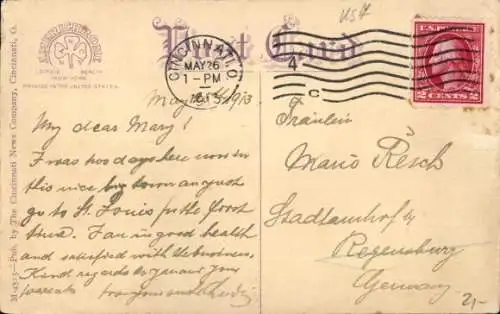 USA
Post Card
CINCINNATI, O.
MAY 26
1 - PM
1913
4
C
U.S. POSTAGE
2 CENTS 2
LEIPZIG BERLIN
NEW YORK
PRINTED IN THE UNITED STATES.
M-4313—Pub. by The Cincinnati News Company, Cincinnati, O.
May 1913
My dear Mary!
I was two days here now in
this nice big town and just
go to St. Louis for the first
time. I am in good health
and satisfied with the business.
Kind regards to you and your
parents from your
Fräulein
Marie Resch
Stadtamhof by
Regensburg
Germany
2,-